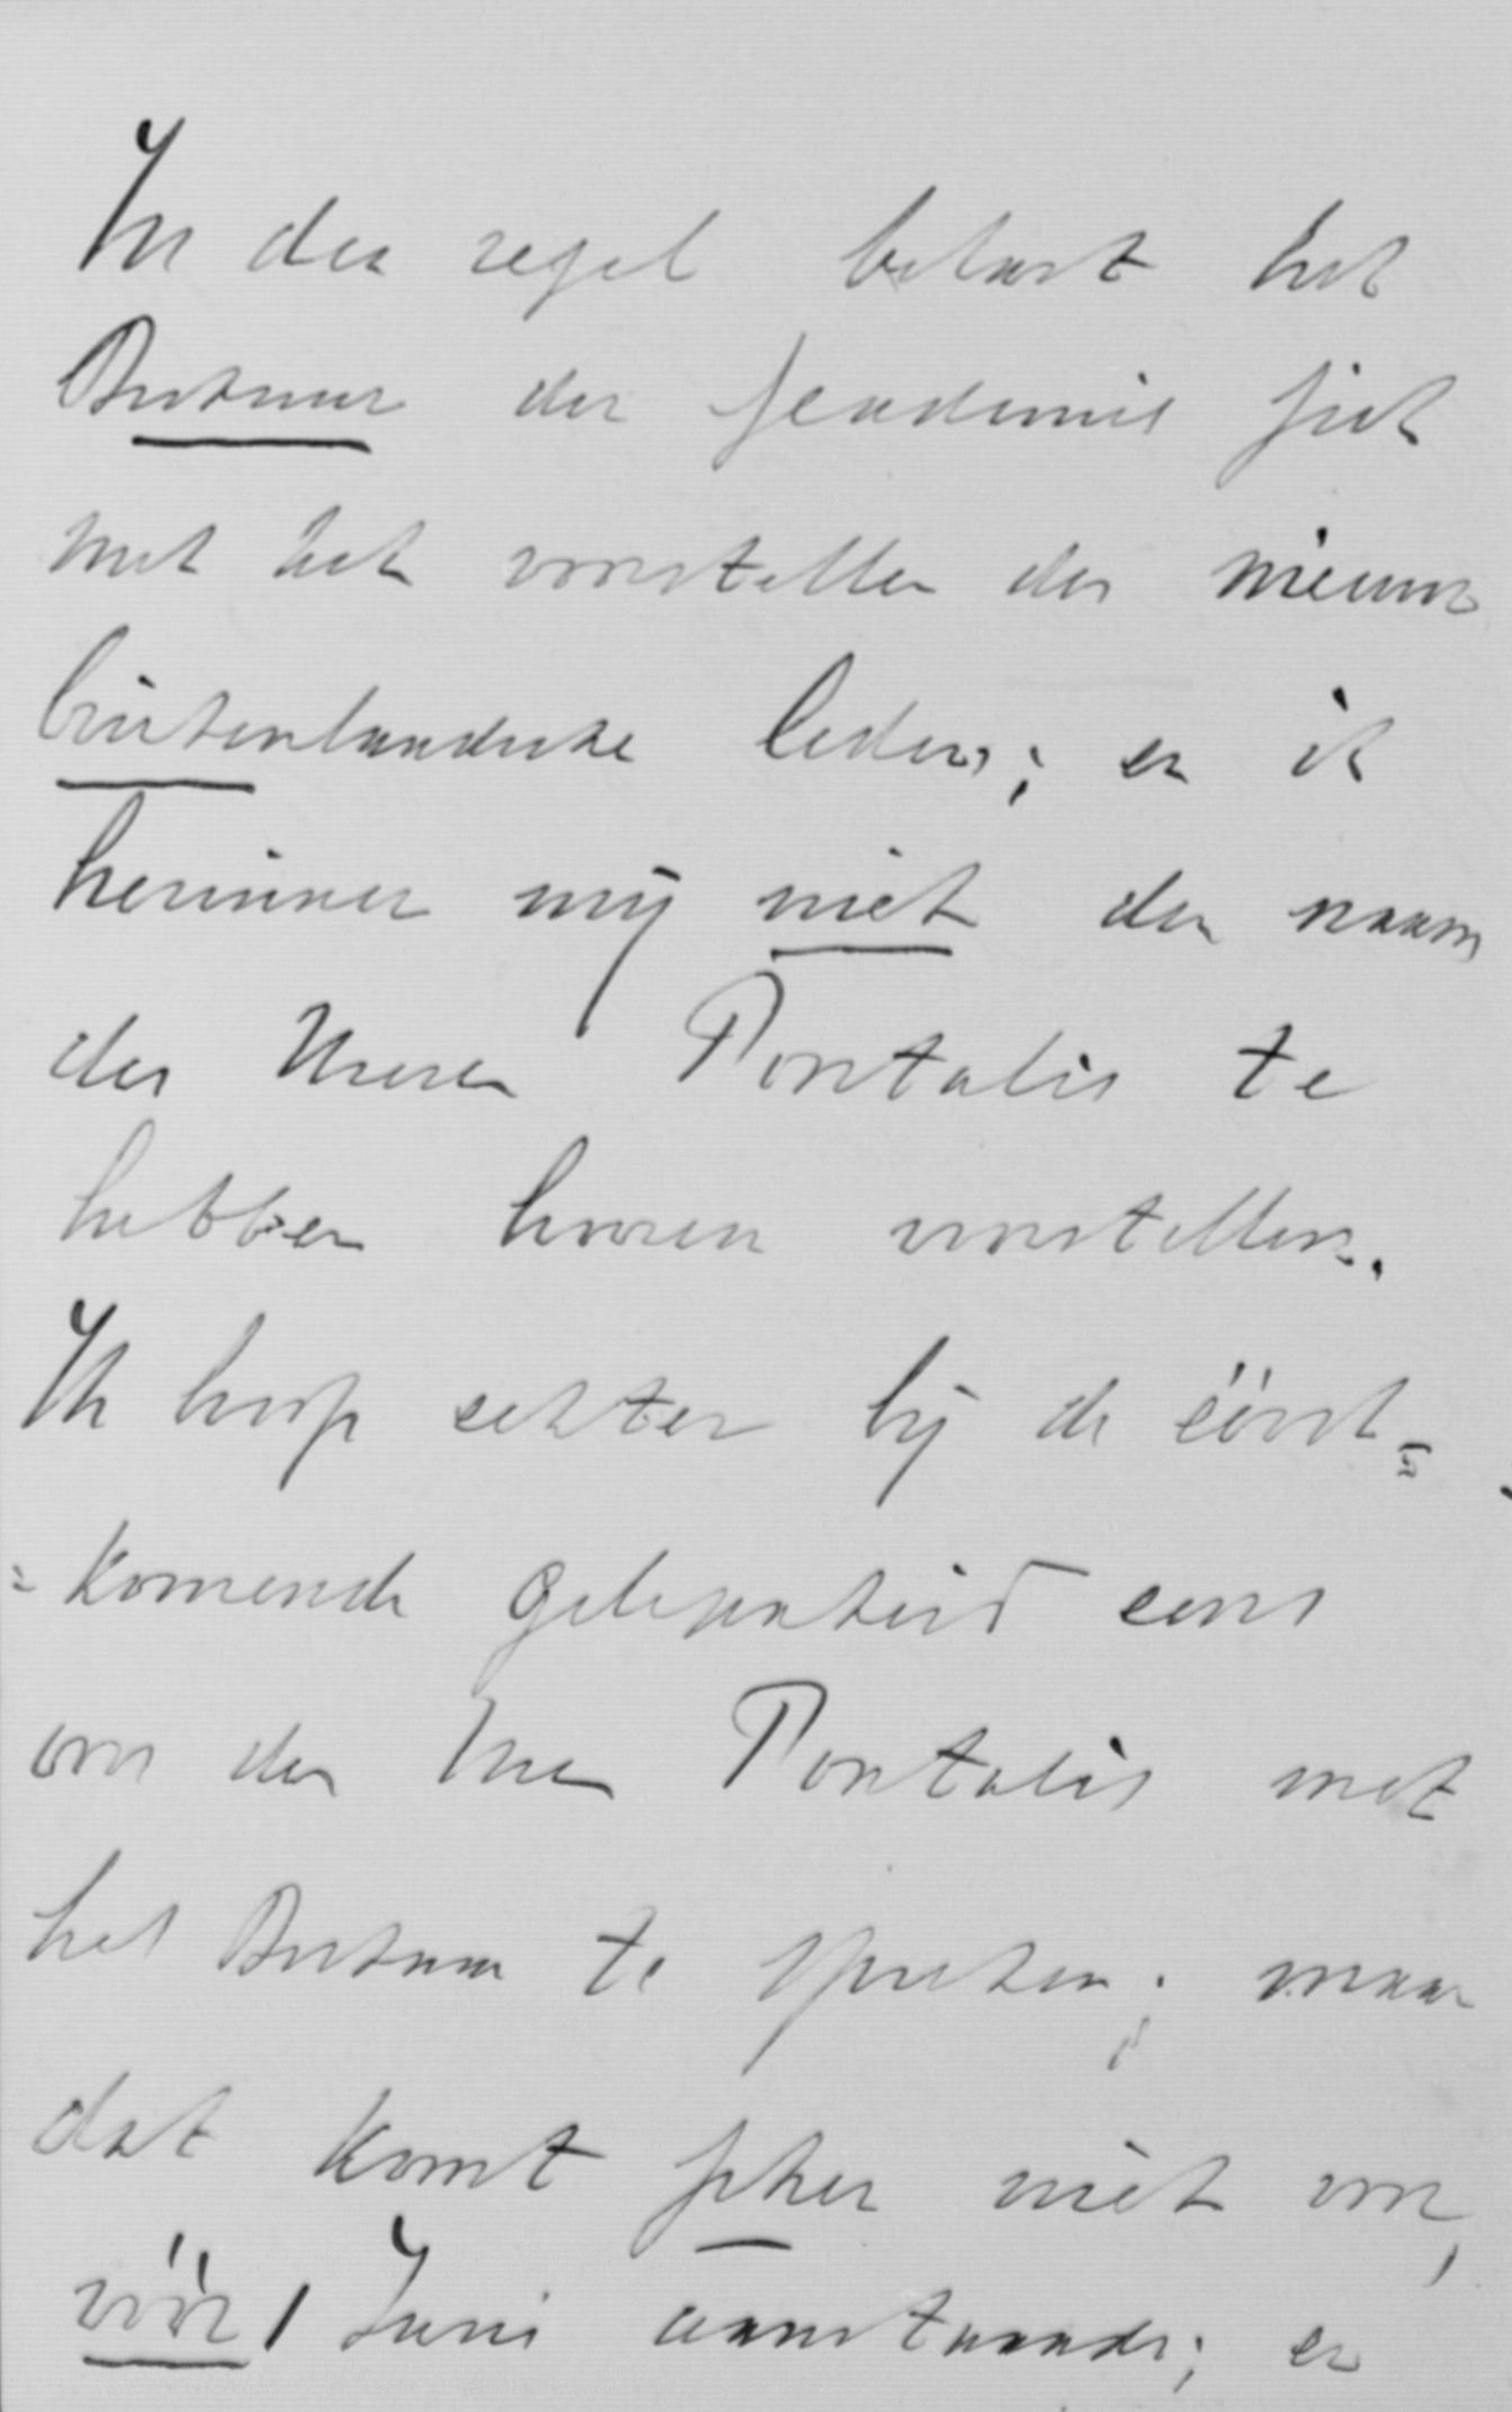 In den regel belast het
Bestuur der Academie zich
met het voorstellen der nieuwe
buitenlandsche leden; en ik
herinner mij niet den naam
des Heeren Pontalis te
hebben hooren voorstellen.
Ik hoop echter bij de éérst=
=komende gelegenheid eens
over den Heer Pontalis met
het Bestuur te spreken; maar
dat komt zeker niet voor,
vóór 1 Juni aanstaande; en